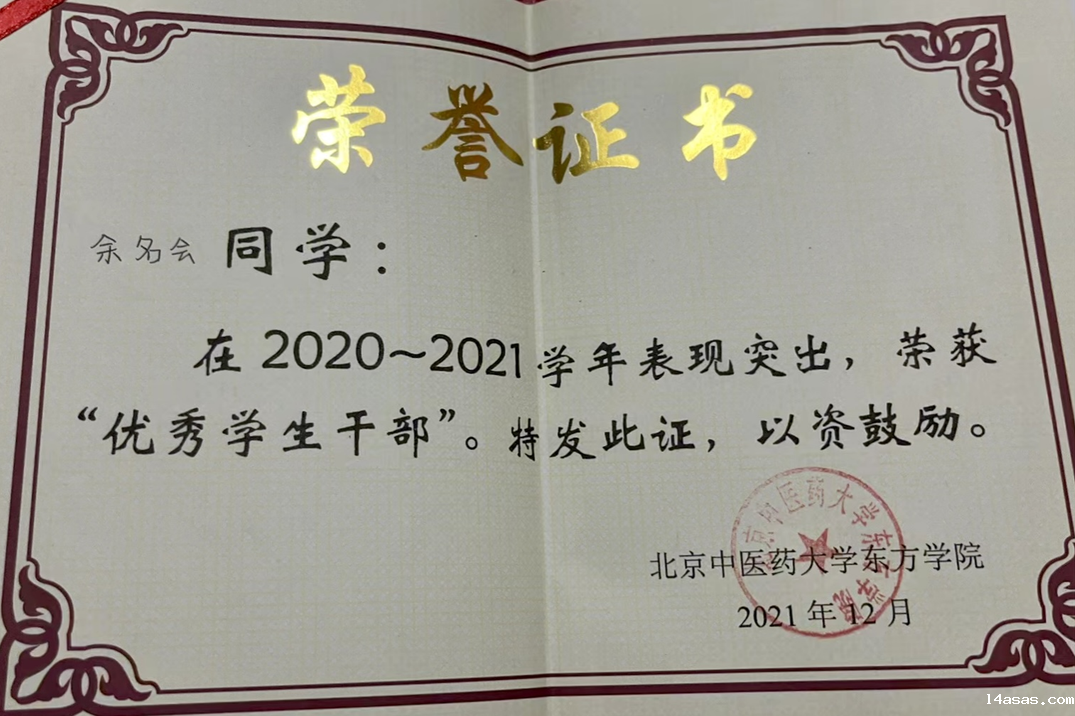 荣誉证书
余名会 同学：
在2020~2021学年表现突出，荣获
“优秀学生干部”。特发此证，以资鼓励。
北京中医药大学东方学院
2021年12月
北京中医药大学东方学院
14asas.com